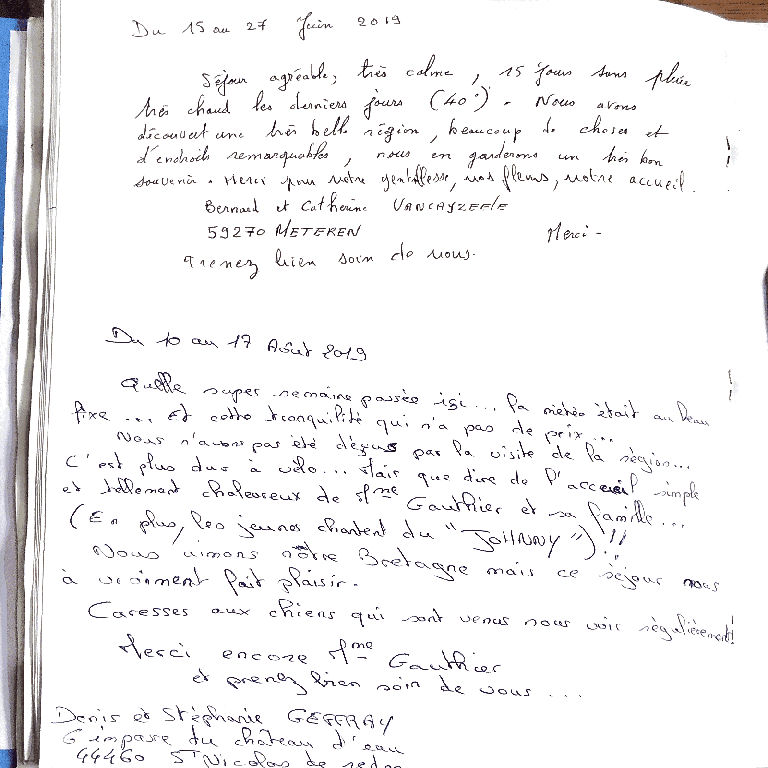 Du 15 au 27 Juin 2019
Séjour agréable, très calme, 15 jours sans pluie
très chaud les derniers jours (40°). Nous avons
découvert une très belle région, beaucoup de choses et
d'endroits remarquables, nous en garderons un très bon
souvenir. Merci pour votre gentillesse, vos fleurs, votre accueil.
Bernard et Catherine VANCAYZEELE
59270 METEREN Merci -
Prenez bien soin de vous.
Du 10 au 17 Août 2019
Quelle super semaine passée ici... la météo était au beau
fixe ... Et cette tranquilité qui n'a pas de prix...
Nous n'avons pas été déçus par la visite de la région...
C'est plus dur à vélo... Mais que dire de l'acceuil simple
et tellement chaleureux de Mme Gauthier et sa famille...
(En plus, les jeunes chantent du "JOHNNY")!!
Nous aimons notre Bretagne mais ce séjour nous
à vraiment fait plaisir.
Caresses aux chiens qui sont venus nous voir régulièrement!
Merci encore Mme Gauthier
et prenez bien soin de vous ...
Denis et Stéphanie GEFFRAY
6 impasse du château d'eau
44460 St Nicolas de redon